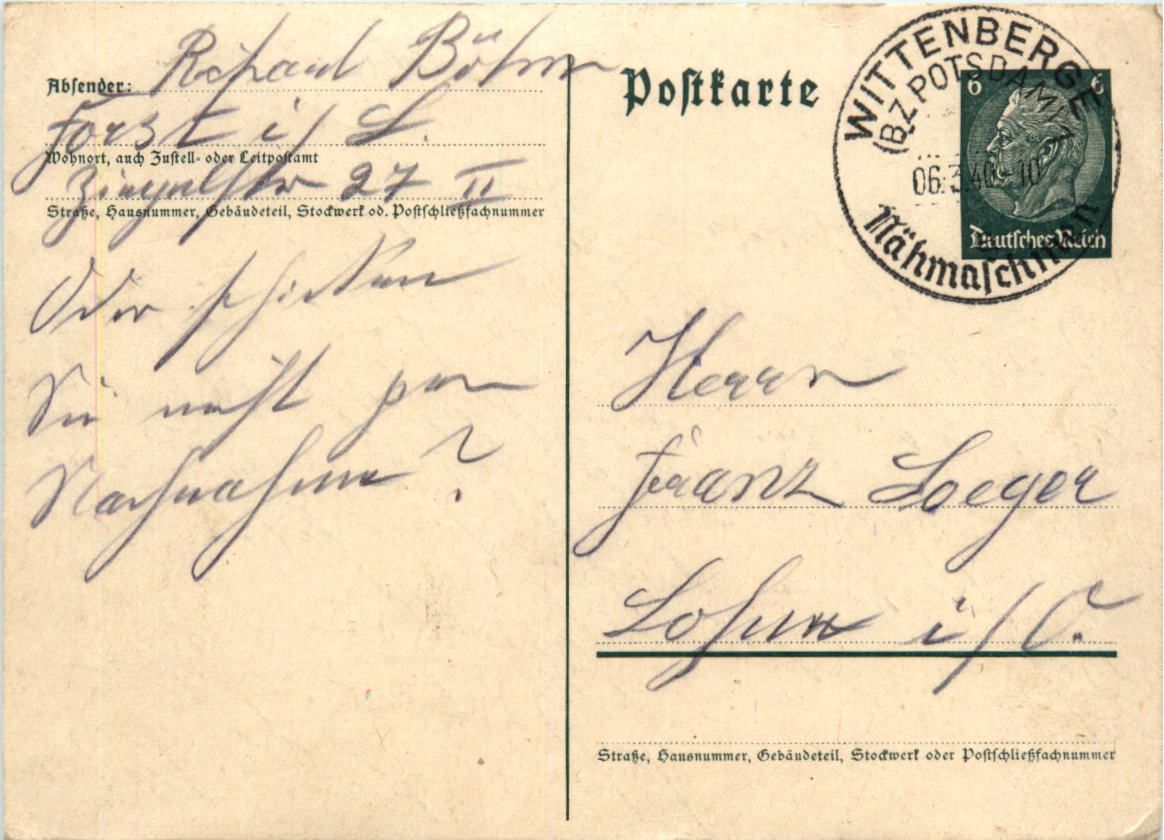 Absender: Richard Böhm
Forst i/ L.
Wohnort, auch Zustell- oder Leitpostamt
27 II
Straße, Hausnummer, Gebäudeteil, Stockwerk od. Postschließfachnummer
Oder schicken
Sie nicht per
Nachnahme?
Postkarte
WITTENBERGE
(BZ. POTSDAM) 1
06.3.40-10
Nähmaschinen
6 6
Deutsches Reich
Herrn
Franz
i/
Straße, Hausnummer, Gebäudeteil, Stockwerk oder Postschließfachnummer